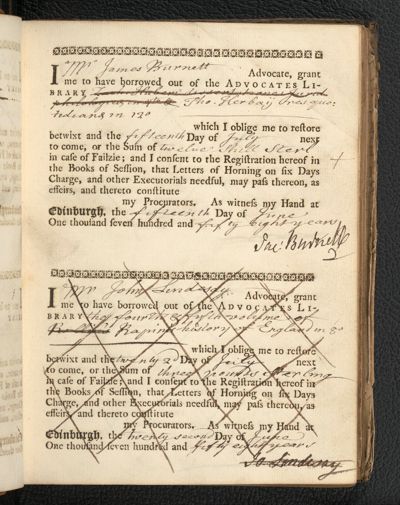 I Mr James Burnett Advocate, grant
me to have borrowed out of the ADVOCATES LI-
BRARY
Tho.
in 12o
which I oblige me to restore
betwixt and the fifteenth Day of July next
to come, or the Sum of twelve Shill Sterl
in case of Failzie; and I consent to the Registration hereof in
the Books of Session, that Letters of Horning on six Days
Charge, and other Executorials needful, may pass thereon, as
effeirs, and thereto constitute
my Procurators. As witness my Hand at
Edinburgh, the fifteenth Day of June
One thousand seven hundred and fifty eight years
Ja: Burnett
I Mr John Lindesay Advocate, grant
me to have borrowed out of the ADVOCATES LI-
BRARY the fourth & fifth volumes of
Rapin's history of England in 8o
which I oblige me to restore
betwixt and the twenty 2d Day of July next
to come, or the Sum of three pounds Sterling
in case of Failzie; and I consent to the Registration hereof in
the Books of Session, that Letters of Horning on six Days
Charge, and other Executorials needful, may pass thereon, as
effeirs, and thereto constitute
my Procurators. As witness my Hand at
Edinburgh, the twenty second Day of June
One thousand seven hundred and fifty eight years
Jo Lindesay